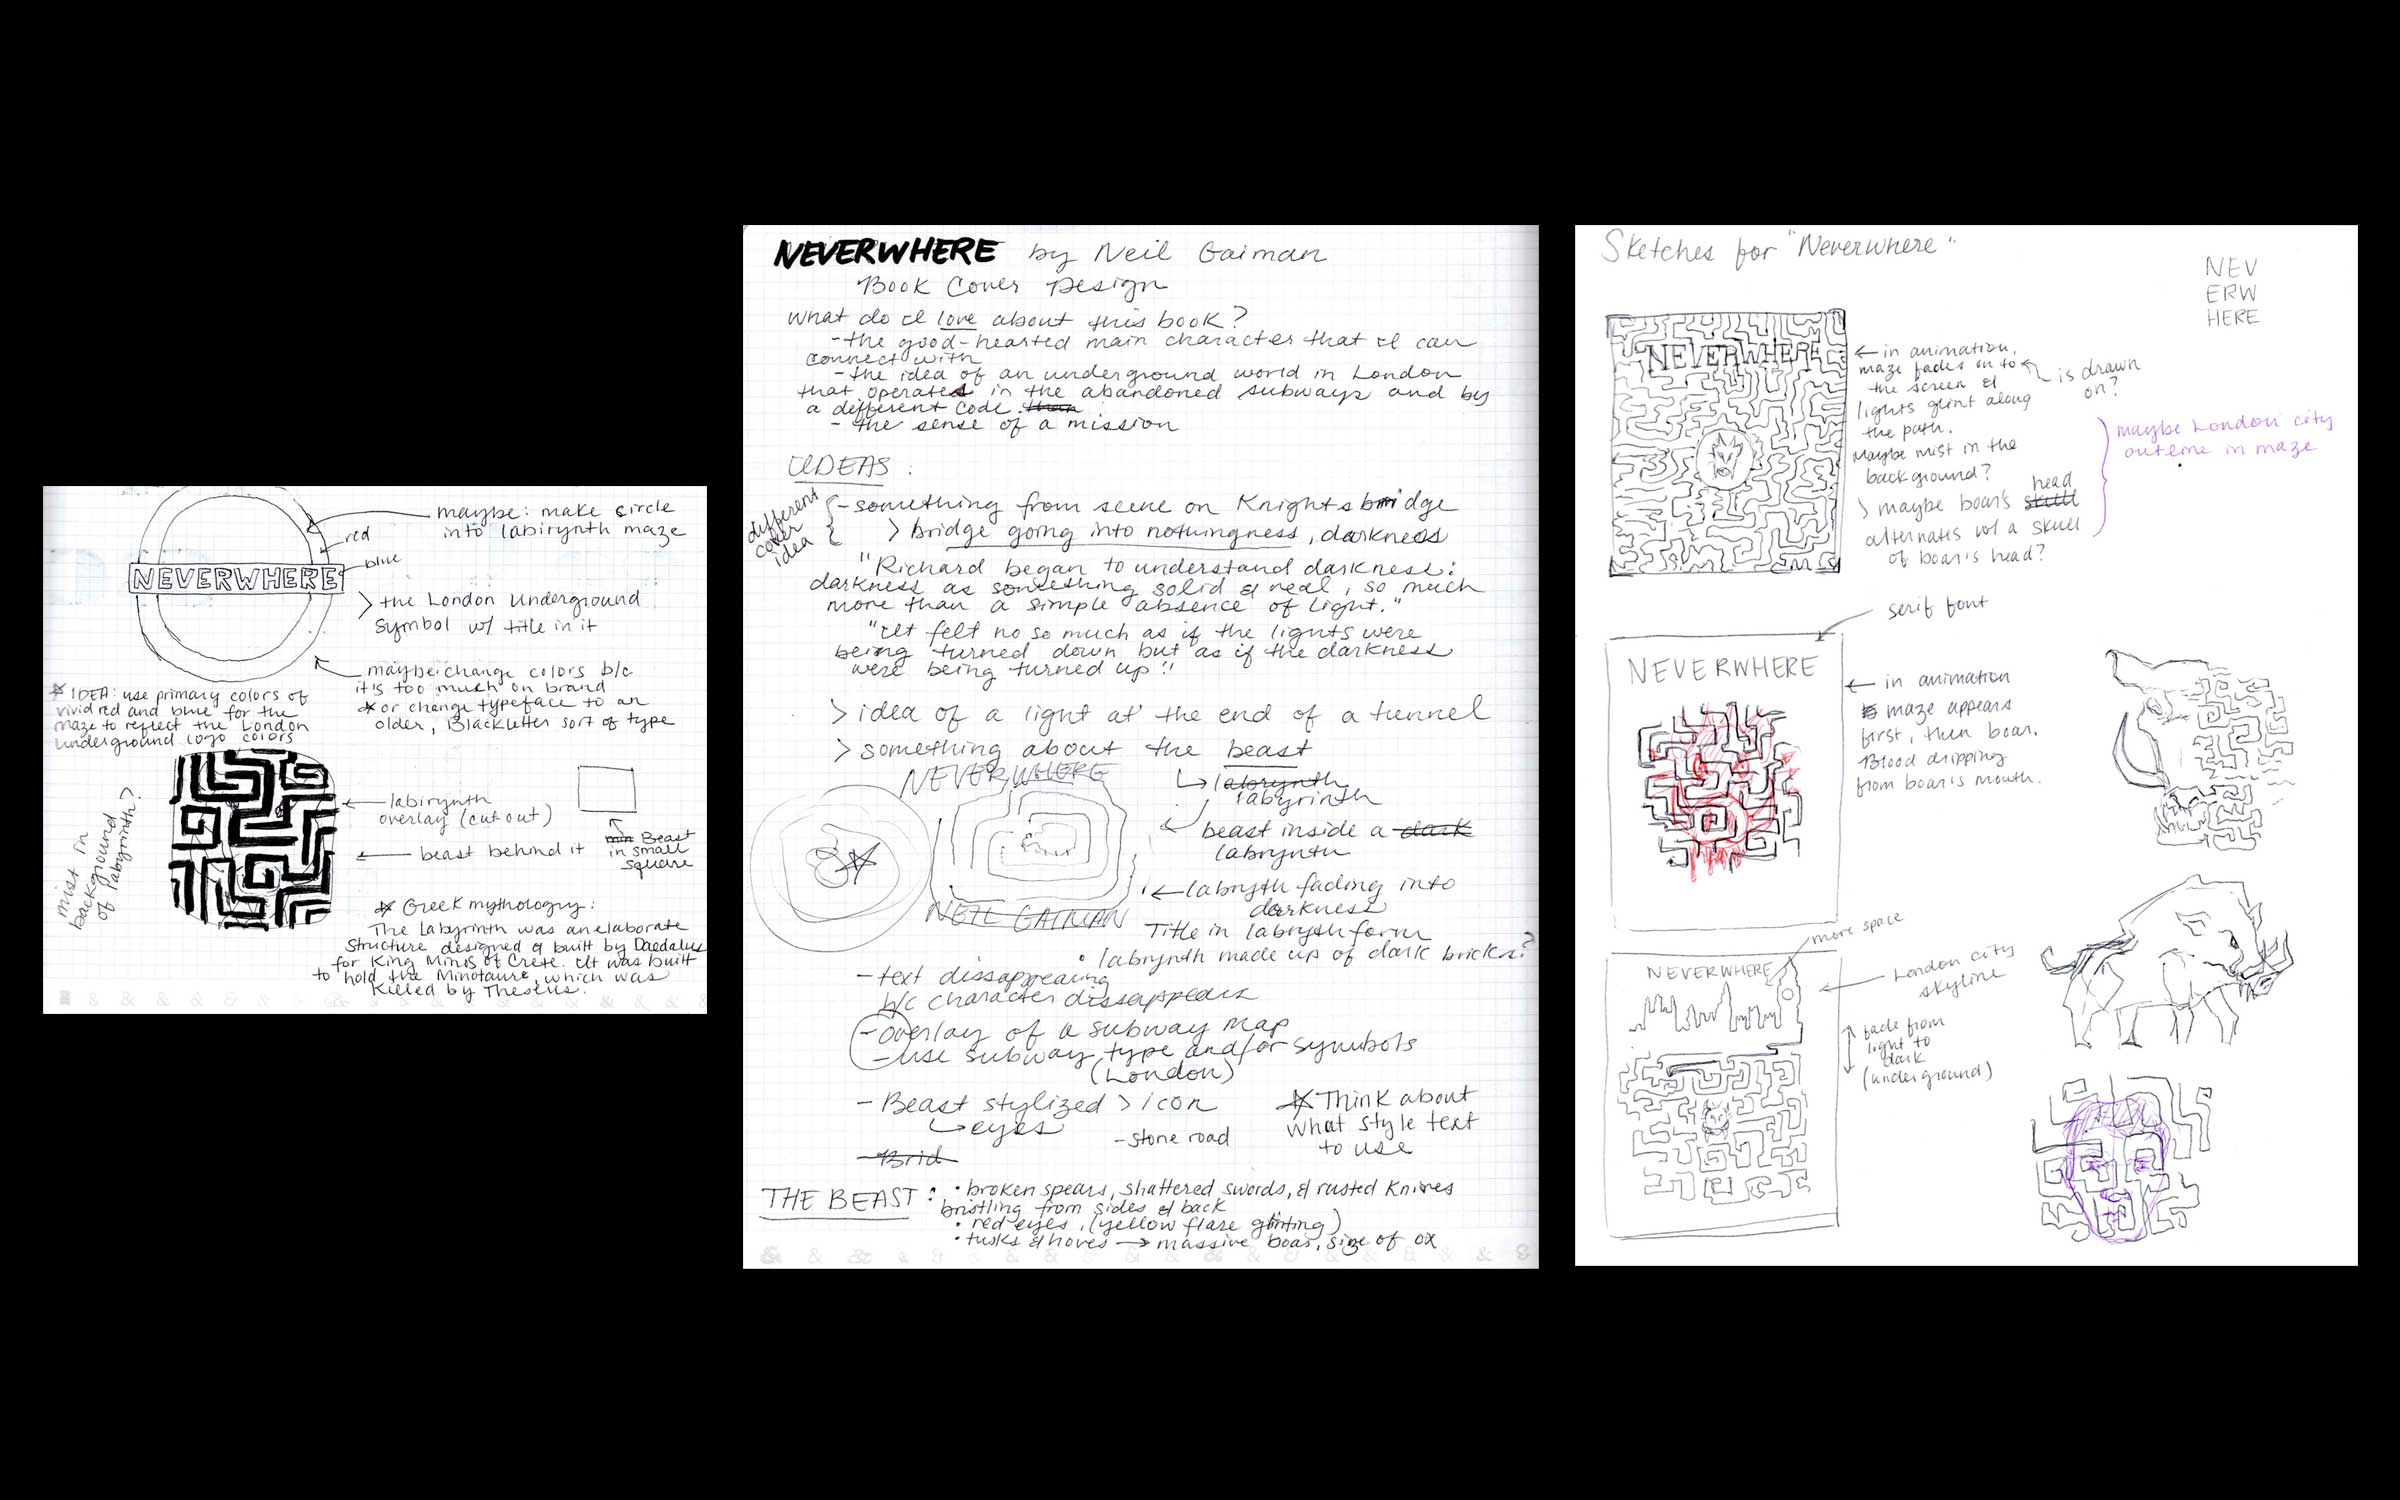 maybe: make circle
into labirynth maze
red
blue
NEVERWHERE
> the London Underground
symbol w/ title in it
maybe change colors b/c
it's too much on brand
* or change typeface to an
older, Blackletter sort of type
* IDEA: use primary colors of
vivid red and blue for the
maze to reflect the London
Underground logo colors
mist in
background
of labyrinth?
labirynth
overlay (cut out)
beast behind it
Beast
in small
square
* Greek mythology:
The Labyrinth was an elaborate
structure designed & built by Daedalus
for King Minos of Crete. It was built
to hold the Minotaur, which was
killed by Theseus.
NEVERWHERE by Neil Gaiman
Book Cover Design
What do I love about this book?
- the good-hearted main character that I can
connect with
- the idea of an underground world in London
that operates in the abandoned subways and by
a different code than
- the sense of a mission
IDEAS:
different
cover
idea
- something from scene on Knightsbridge
> bridge going into nothingness, darkness
"Richard began to understand darkness:
darkness as something solid & real, so much
more than a simple absence of light."
"It felt no so much as if the lights were
being turned down but as if the darkness
were being turned up"
> idea of a light at the end of a tunnel
> something about the beast
NEVERWHERE
labrynth
labyrinth
beast inside a dark
labrynth
labryth fading into
darkness
NEIL GAIMAN
Title in labryth form
• labrynth made up of dark bricks?
- text dissappearing
b/c character dissappears
- overlay of a subway map
- use subway type and/or symbols
(London)
- Beast stylized > icon
eyes
- stone road
* Think about
what style text
to use
- Brid
THE BEAST: • broken spears, shattered swords, & rusted knives
bristling from sides & back
• red eyes, (yellow flare glinting)
• tusks & hoves → massive boar, size of ox
Sketches for "Neverwhere"
NEV
ERW
HERE
NEVERWHERE
in animation,
maze fades in to
the screen &
lights glint along
the path.
is drawn
on?
Maybe mist in the
background?
> maybe boar's skull head
alternates w/ a skull
of boar's head?
maybe London city
outline in maze
serif font
NEVERWHERE
in animation
maze appears
first, then boar.
Blood dripping
from boar's mouth.
more space
NEVERWHERE
London city
skyline
fade from
light to
dark
(underground)